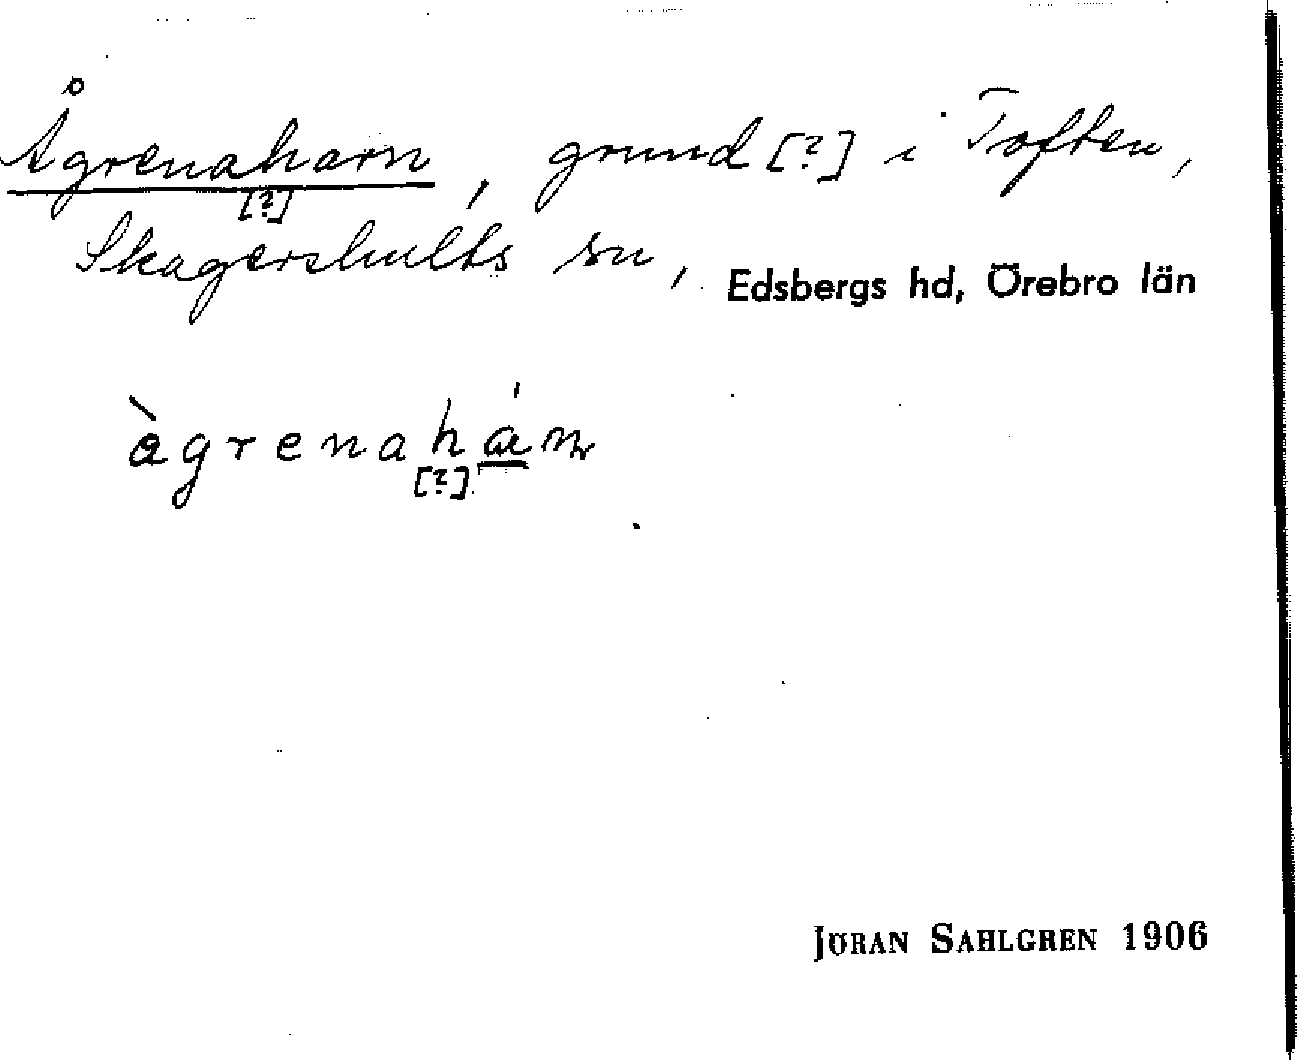 Ågrenaharn, grund [?] i Toften,
[?]
Skagershults sn, Edsbergs hd, Örebro län
àgrenahán
[?]
JÖRAN SAHLGREN 1906